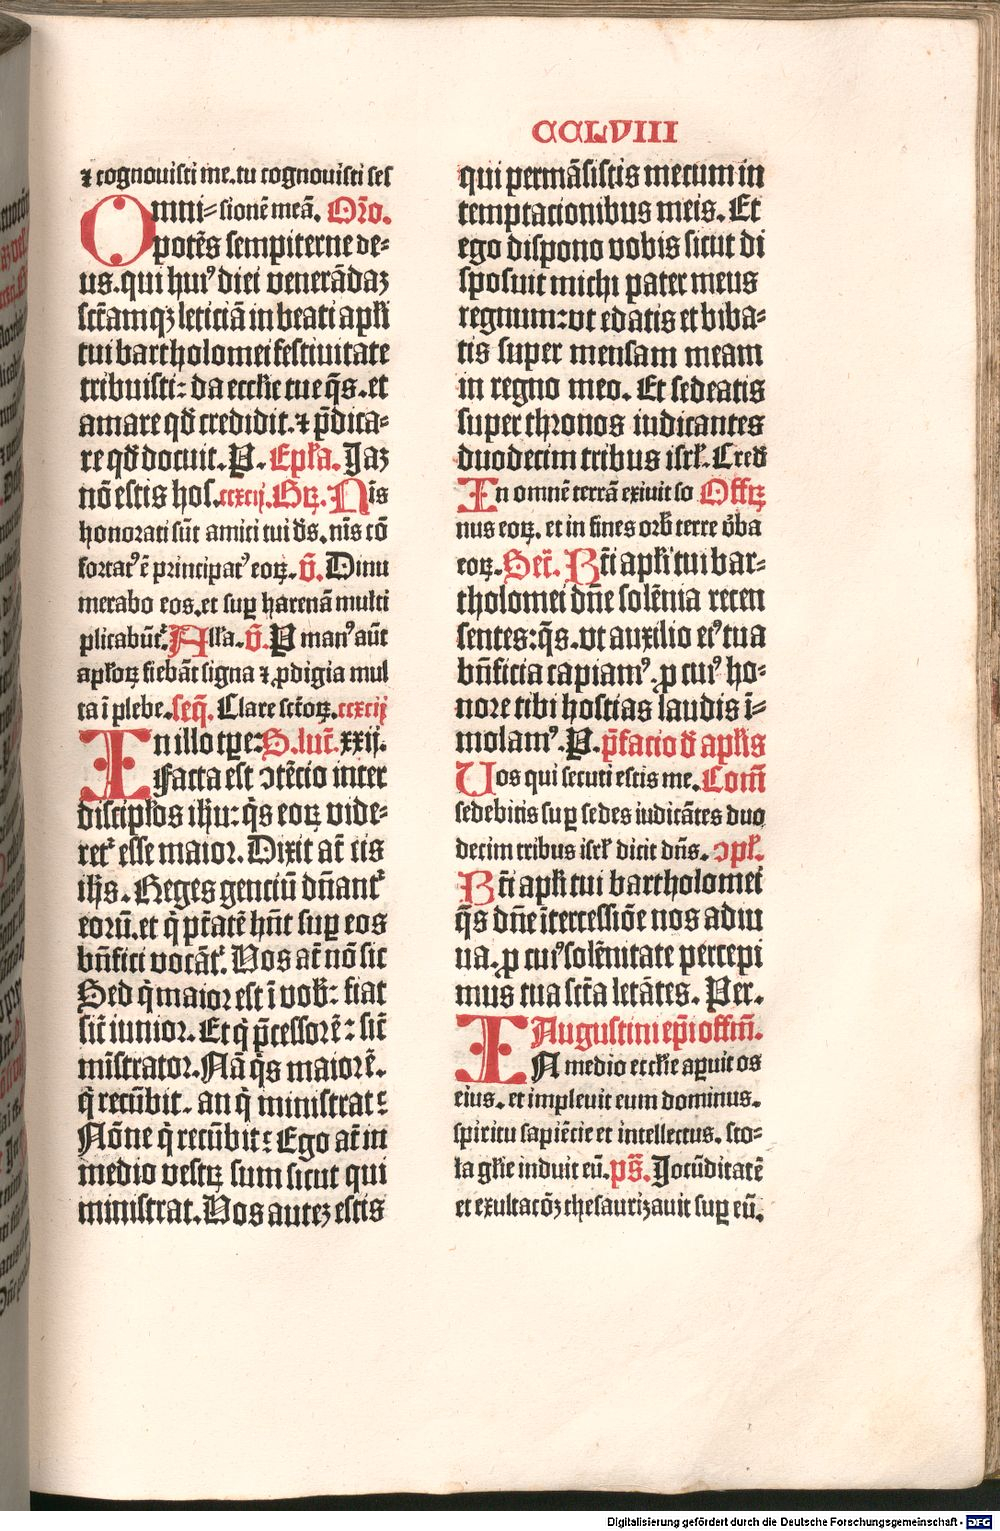 CCLVIII
⁊ cognouisti me. tu cognouisti ses
Omni⸗ sionē meā. Oro̅.
potēs sempiterne de⸗
us. qui huiꝰ diei venerādaꝫ
sc̄tamqꝫ leticiā in beati apl̄i
tui bartholomei festiuitate
tribuisti: da eccl̄ie tue q̄s. et
amare qđ credidit. ⁊ p̄dica⸗
re qđ docuit. P. Ep̄la. Jaꝫ
nō estis hos. ccxcij. Gꝝ. Nis
honorati sūt amici tui d̄s. nīs cō
fortatꝰ ē principatꝰ eoꝝ. v̄. Dinu
merabo eos. et suꝑ harenā multi
plicabūt᷑. Alľa. v̄. P manꝰ aūt
apľoꝝ fiebāt signa ⁊ ꝓdigia mul
ta ī plebe. seq̄. Clare sc̄toꝝ. ccxcij
In illo tp̄e: S. luc̄. xxij.
Facta est ↄtēcio inter
discipľos ihu: q̄s eoꝝ vide⸗
ret᷑ esse maior. Dixit at̄ eis
ih̄s. Reges genciū dn̄ant᷑
eorū. et q̇ pt̄atē hn̄t suꝑ eos
bn̄fici vocāt᷑. Vos at̄ nō sic
Sed q̇ maior est ī vob̄: fiat
sic̄ iunior. Et q̇ p̄cessorē: sic̄
mīstrator. Nā q̄s maior ē.
q̇ recūbit. an q̇ ministrat:
Nōne q̇ recūbit: Ego at̄ in
medio vestꝝ sum sicut qui
ministrat. Vos auteꝫ estis
qui permāsistis mecum in
temptacionibus meis. Et
ego dispono vobis sicut di
sposuit michi pater meus
regnum: vt edatis et biba⸗
tis super mensam meam
in regno meo. Et sedeatis
super thronos iudicantes
duodecim tribus isrľ. Cređ
In omnē terrā exiuit so Offꝝ
nus eoꝝ. et in fines orb̄ terre v̄ba
eoꝝ. Sec̄. Bt̄i apl̄i tui bar⸗
tholomei dn̄e solēnia recen
sentes: q̄s. vt auxilio eiꝰ tua
bn̄ficia capiamꝰ. ꝓ cuiꝰ ho⸗
nore tibi hostias laudis ī⸗
molamꝰ. P. p̄facio đ apľis
Uos qui secuti estis me. Com̄
sedebitis suꝑ sedes iudicātes duo
decim tribus isrľ dicit dn̄s. ↄpľ.
Bt̄i apl̄i tui bartholomei
q̄s dn̄e ītercessiōe nos adiu
ua. ꝓ cuiꝰ solēnitate percepi
mus tua sc̄ta letātes. Per.
Augustini ep̄i offm̄.
IN medio eccl̄ie apuit os
eius. et impleuit eum dominus.
spiritu sapiēcie et intellectus. sto⸗
la gľie induit eū. ps̄. Jocūditatē
et exultacōꝫ thesaurizauit suꝑ eū.
Digitalisierung gefördert durch die Deutsche Forschungsgemeinschaft - DFG